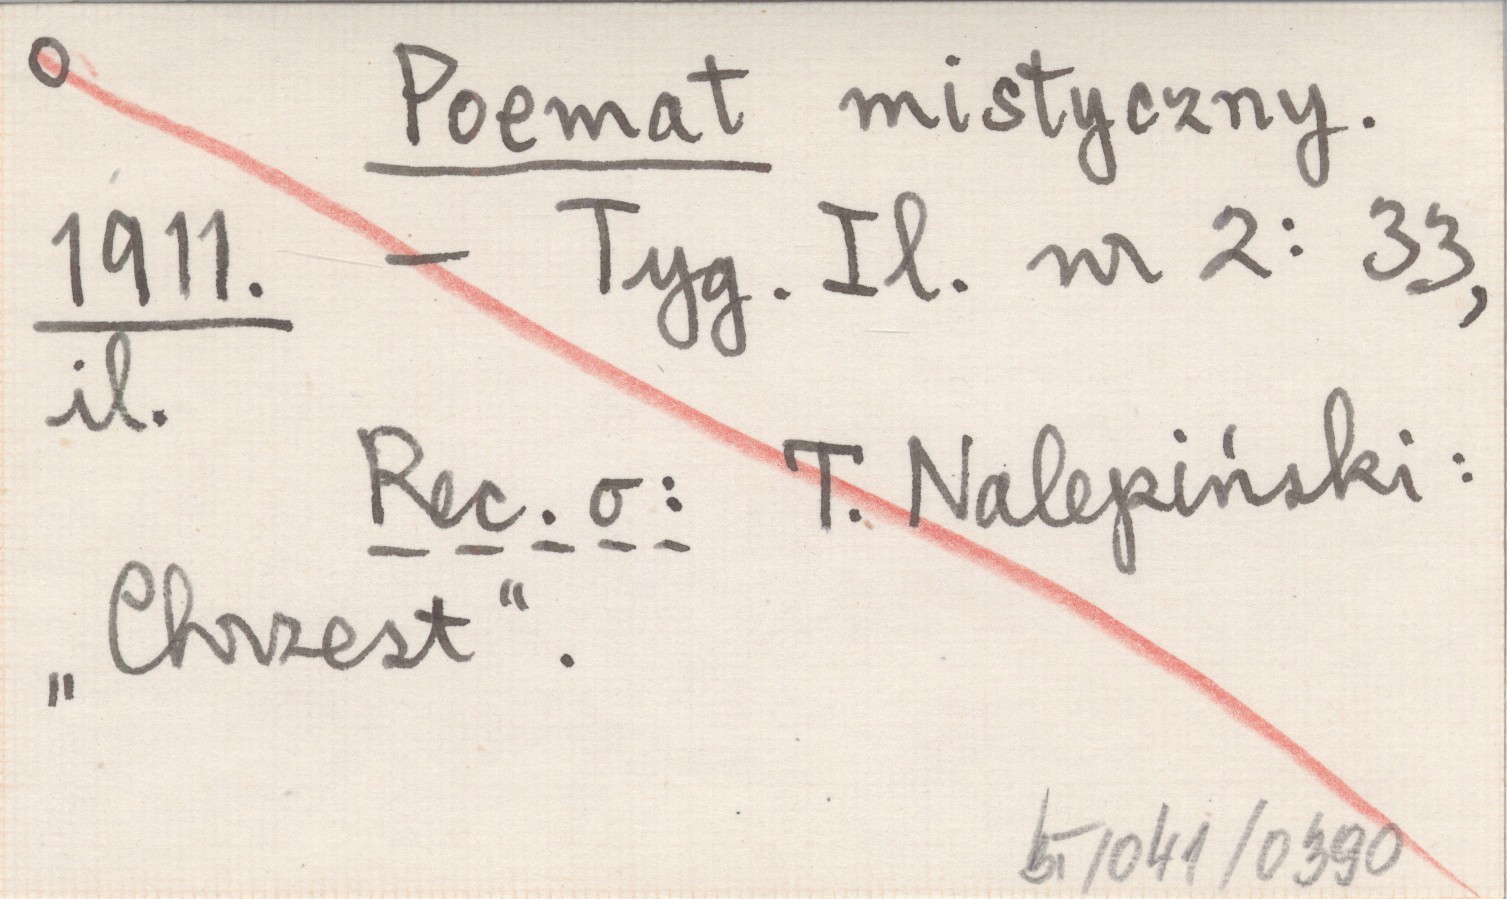 O
Poemat mistyczny.
1911. – Tyg. Il. nr 2: 33,
il.
Rec. o: T. Nalepiński:
„Chrzest“.
/041/0390